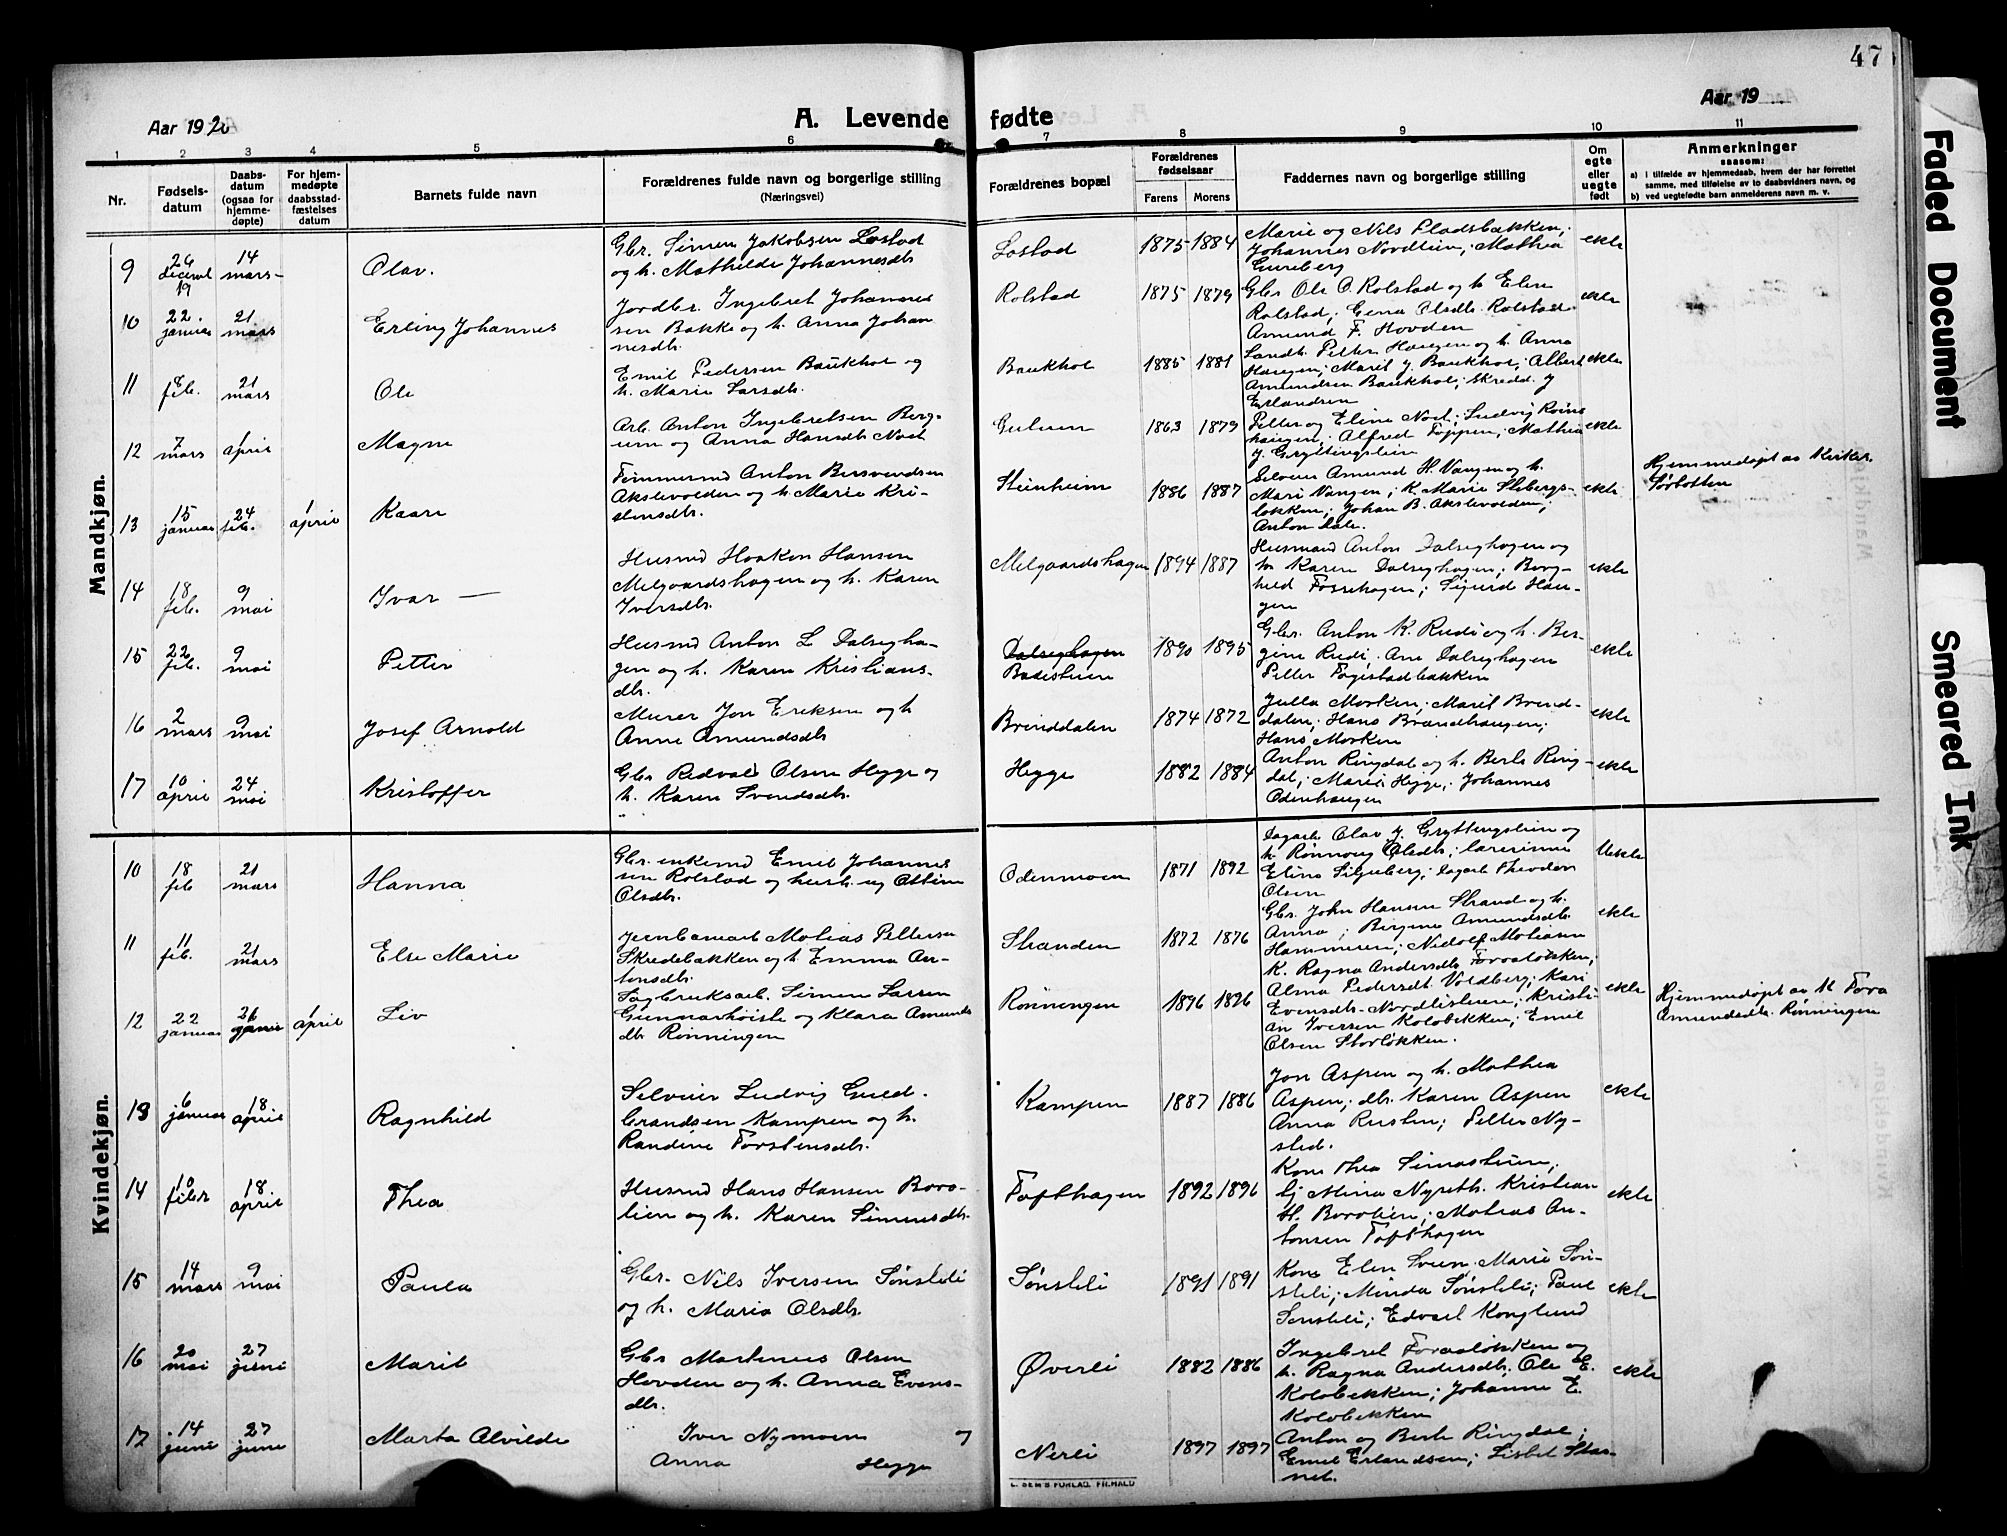 47
Aar 1920
A. Levende
fødte
Aar 19
1 2 3 4 5 6 7 8 9 10 11
Nr.
Fødsels-
datum
Daabs-
datum
(ogsaa for
hjemme-
døpte)
For hjem-
medøpte
daabsstad-
fæstelses
datum
Barnets fulde navn
Forældrenes fulde navn og borgerlige stilling
(Næringsvei)
Forældrenes bopæl
Forældrenes
fødselsaar
Farens Morens
Faddernes navn og borgerlige stilling
Om
egte
eller
uegte
født
Anmerkninger
saasom:
a) i tilfælde av hjemmedaab, hvem der har forrettet
samme, med tilføielse av to daabsvidners navn, og
b) ved uegtefødte barn anmelderens navn m. v.
Mandkjøn.
9
24
decembr
19
14
mars
Olav.
Gbr. Simen Jakobsen Lostad
og h. Mathilde Johannesdtr.
Lostad
1875 1884
Marie og Nils Pladsbakken;
Johannes Nordlien; Mathea
ekte
10
22.
januar
21
mars
Erling Johannes
Jordbr. Ingebret Johannes
sen Bakke og h. Anna Johan
nesdtr.
Rolstad
1875 1879
Gbr Ole O. Rolstad og h Elen
Rolstad; Gena Olsdtr. Rolstad
Amund F. Hovden
ekte
11
8
feb.
21
mars
Ole
Emil Pedersen Baukhol og
h. Marie Larsdtr.
Baukhol
1885 1881
Landh. Petter Haugen og h. Anna
Haugen; Marit J. Baukhol; Albert
Amundsen Baukhol; skredd. J
Erlandsen
ekte
12
7
mars
1
april
Magne
Arb. Anton Ingebretsen Berg-
um og Anna Hansdtr. Noet
1863 1879
Petter og Eline Noet; Ludvig
haugen; Alfred Toppen; Mathea
J. Gryttingslien
ekte
13
15
januar
24
feb.
1
april
Kaare
Tømmermd Anton Bersvendsen
Akslevolden og h. Marie Kri-
stensdtr.
Steinheim
1886 1887
Selveier Amund H. Vangen og h.
Mari Vangen; K. Marie Stebergs-
løkken; Johan B. Akslevolden;
Anton Dale.
ekte
Hjemmedøpt av Kirkes.
Sørbotten
14
18
feb.
9
mai
Ivar
Husmd Haaken Hansen
Melgaardshagen og h. Karen
Iversdtr.
Melgaardshagen
1894 1887
Husmand Anton Dalseghagen og
h. Karen Dalseghagen; Borg-
hild Fossehagen; Sigurd Hau-
gen
ekte
15
22
feb.
9
mai
Petter
Husmd Anton L Dalsegha-
gen og h. Karen Kristians-
dtr.
Dalseghagen
1890 1895
Gbr. Anton K. Rudi og h. Ber-
gine Rudi; Ane Dalseghagen
Petter Fagistadbakken
ekte
16
2
mars
9
mai
Josef Arnold
Murer Jon Eriksen og h
Anne Amundsdtr
Brenddalen
1874 1872
Julla Morken; Marit Brend-
dalen; Hans Brandhaugen;
Hans Morken
ekte
17
10
april
24
mai
Kristoffer
Gbr Redvald Olsen Hegge og
h. Karen Svendsdtr.
Hegge
1882 1884
Anton Ringdal og h. Berte Ring-
dal; Marie Hegge; Johannes
Odenhaugen
ekte
Kvindekjøn.
10
18
feb
21
mars
Hanna
Gbr. enkemd Emil Johannes
sen Rolstad og hush. ug Olline
Olsdtr.
Odenmoen
1871 1892
Dagarb Olav J. Gryttingslien og
h. Rønnoug Olsdtr; lærerinne
Elina Siljuberg; dagarb Theodor
Olsen
Uekte
11
11
feb.
21
mars
Else Marie
Jernbanearb. Matias Pettersen
Skredebakken og h. Emma An-
tonsdtr.
Stranden
1872 1876
Gbr. John Hansen Strand og h.
Anna; Bergine Amundsdtr.
Hammeren; Nidolf Matiasen
K. Ragna Andersdtr. Foraaløkken;
ekte
12
22
januar
26
april
Liv
Sagbruksarb. Simen Larsen
Gunnarhøiste og Klara Amunds
dtr. Rønningen
Rønningen
1896 1896
Alma Pedersdt Voldberg; Kari
Evensdtr. Nordlistuen; Kristi-
an Iversen Kolobekken; Emil
Olsen Storløkken.
ekte
Hjemmedøpt av K Tora
Amundsdtr. Rønningen
13
6
januar
18
april
Ragnhild
Selveier Ludvig Guld-
brandsen Kampen og h.
Randine Torstensdtr.
Kampen
1887 1886
Jon Aspen og h. Mathea
Aspen; dtr. Karen Aspen
Anna Rusten; Petter Ny-
sted.
ekte
14
10
febr
18
april
Thea
Husmd Hans Hansen Boro-
lien og h. Karen Simensdtr.
Tofthagen
1892 1896
Kone Thea Simastuen;
Gj Mina Nyreth. Kristian
H. Borolien; Matias An-
tonsen Tofthagen
ekte
15
14
mars
9
mai
Paula
Gbr. Nils Iversen Sønsteli
og h. Maria Olsdtr.
Sønsteli
1891 1891
Kone Elen Sveen; Marie Søn-
steli; Minda Sønsteli; Paul
Sønsteli; Edvart Konglund
ekte
16
20
mai
27
juni
Marit
Gbr Martinus Olsen
Hovden og h. Anna Evens-
dtr.
Øverli
1882 1886
Ingebret Foraaløkken og
h. Ragna Andersdtr. Ole E.
Kolobekken; Johanne E.
Kolobekken
ekte
17
14
juni
27
juni
Marta Alvilde
Iver Nymoen og
Anna Hegge
Nerli
1897 1897
Anton og Berte Ringdal;
Emil Erlandsen; Lisbet Stor-
net.
E. SEM'S FORLAG, FR.HALD
Faded Document
Smeared Ink